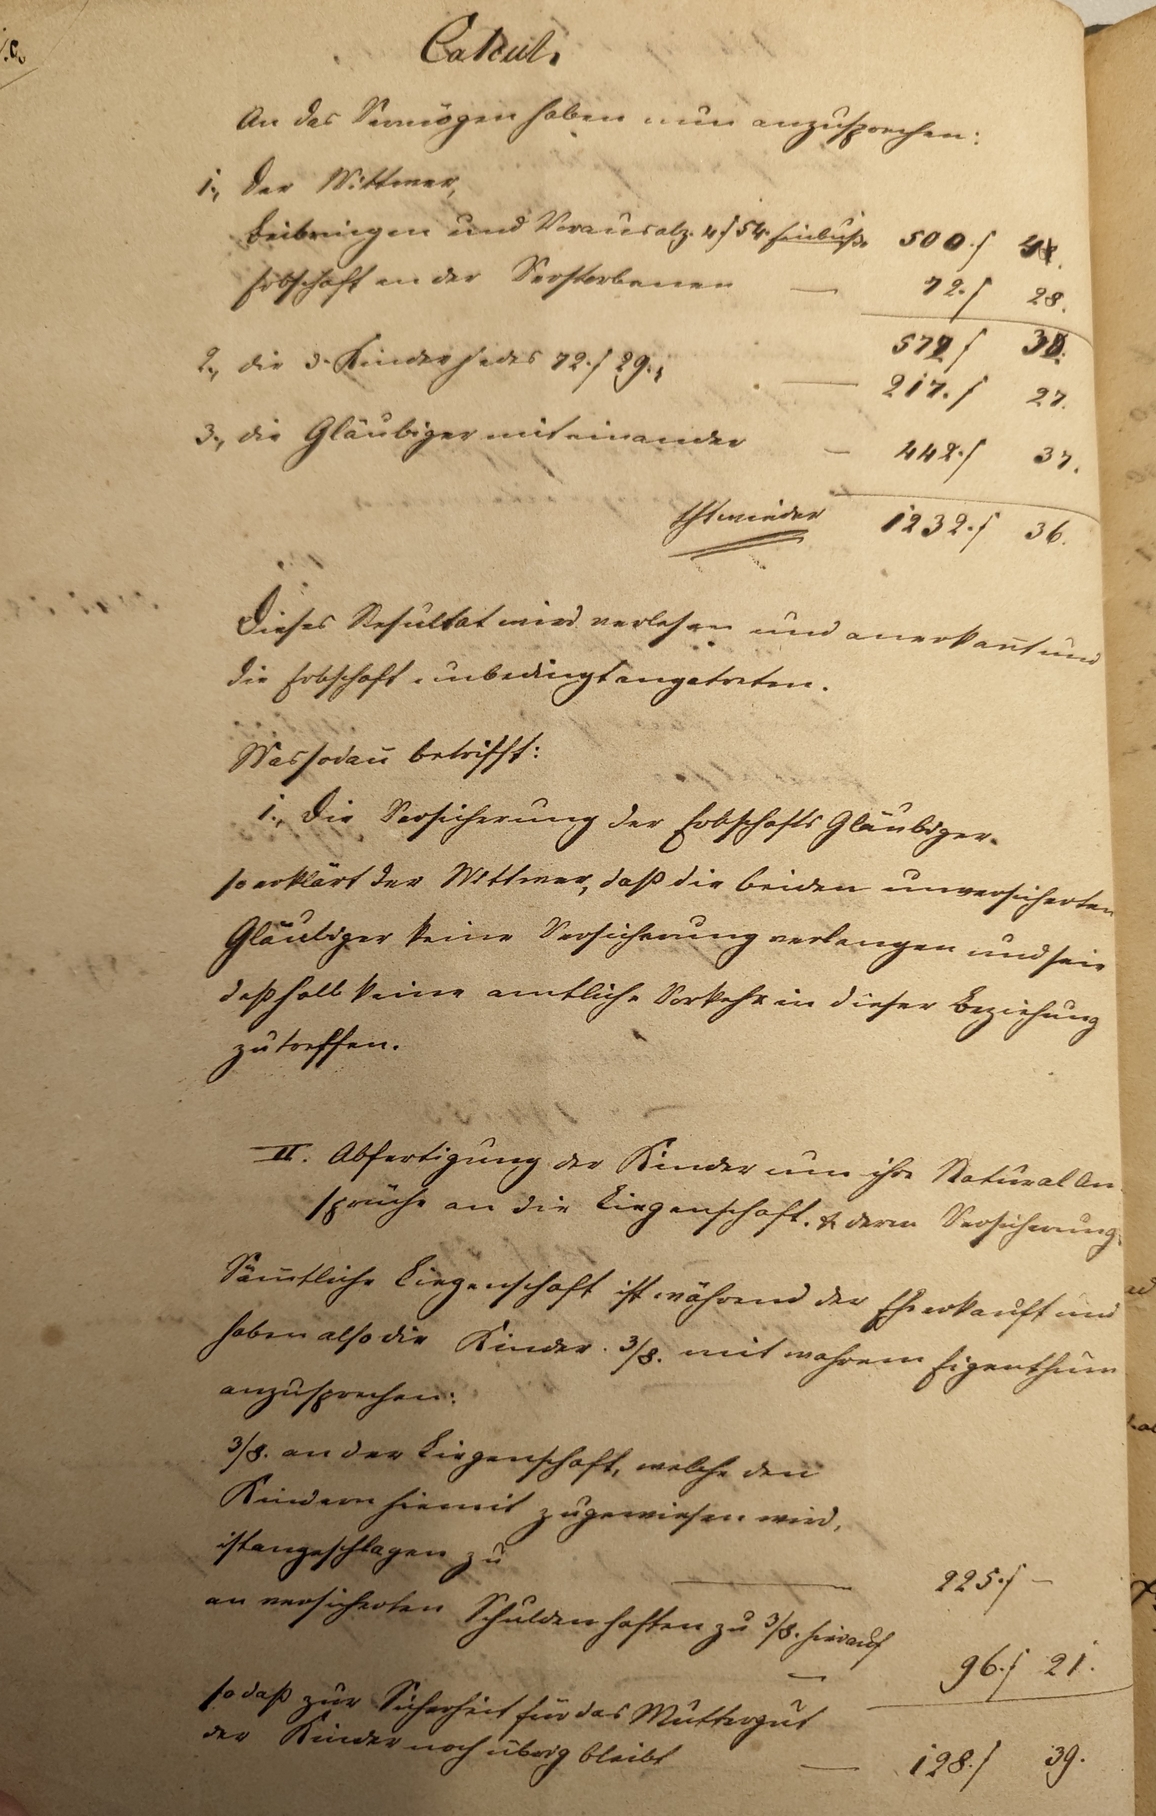 Calcul.
An das Vermögen haben nun anzusprechen:
1., der Wittwer,
Beibringen und Voraus abz. 4 f 54. Einbuße 500. f 4.
Erbschaft an der Verstorbenen — 72. f 28.
572 f 32.
2., die 3. Kinder jedes 72. f 29., — 217. f 27.
3., die Gläubiger miteinander — 442. f 37.
Thut wieder 1232. f 36.
Dieses Resultat wird verlesen und anerkañt und
die Erbschaft unbedingt angetreten.
Was sodañ betrifft:
1., Die Versicherung der Erbschafts Gläubiger.
so erklärt der Wittwer, daß die beiden unversicherten
Gläubiger keine Versicherung verlangen und seie
deßhalb keine amtliche Vorkehr in dieser Beziehung
zu treffen.
II. Abfertigung der Kinder um ihre Natural An-
sprüche an die Liegenschaft. & deren Versicherung.
Säm̃tliche Liegenschaft ist während der Ehe erkauft und
haben also die Kinder. 3/8. mit wahrem Eigenthum
anzusprechen:
3/8. an der Liegenschaft, welche den
Kindern hiemit zugewiesen wird,
ist angeschlagen zu — 225. f —
an versicherten Schulden haften zu 3/8. hierauf
— 96. f 21.
so daß zur Sicherheit für das Muttergut
der Kinder noch übrig bleibt — 128. f 39.